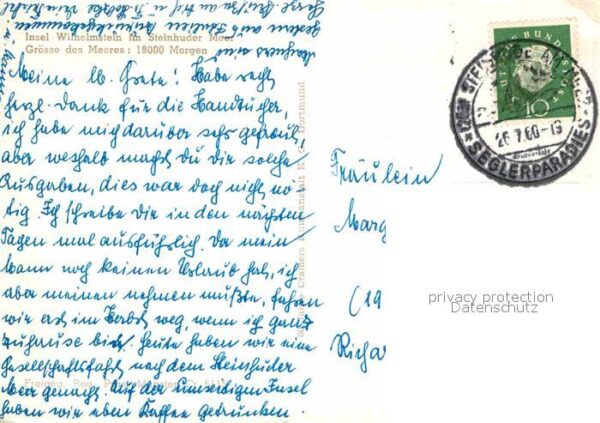 Insel Wilhelmstein im Steinhuder Meer
Grösse des Meeres: 18000 Morgen
Meine lb. Grete! Habe recht
herzl. Dank für die Handtücher,
ich habe mich darüber sehr gefreut,
aber weshalb machst du dir solche
Ausgaben, dies war doch nicht nö-
tig. Ich schreibe Dir in den nächsten
Tagen mal ausführlich. Da mein
Mann noch keinen Urlaub hat, ich
aber meinen nehmen mußte, fahren
wir erst im Herbst weg, wenn ich ganz
zuhause bin. Heute haben wir eine
Gesellschaftsfahrt nach dem Steinhuder
Meer gemacht. Auf der umseitigen Insel
haben wir eben Kaffee getrunken.
Cramers Kunstanstalt K Dortmund
Fräulein
Marg
(19
Richa
DEUTSCHE BUNDESPOST
10
STEINHUDE AM MEER
26.7.60-13
SEGLERPARADIES
privacy protection
Datenschutz